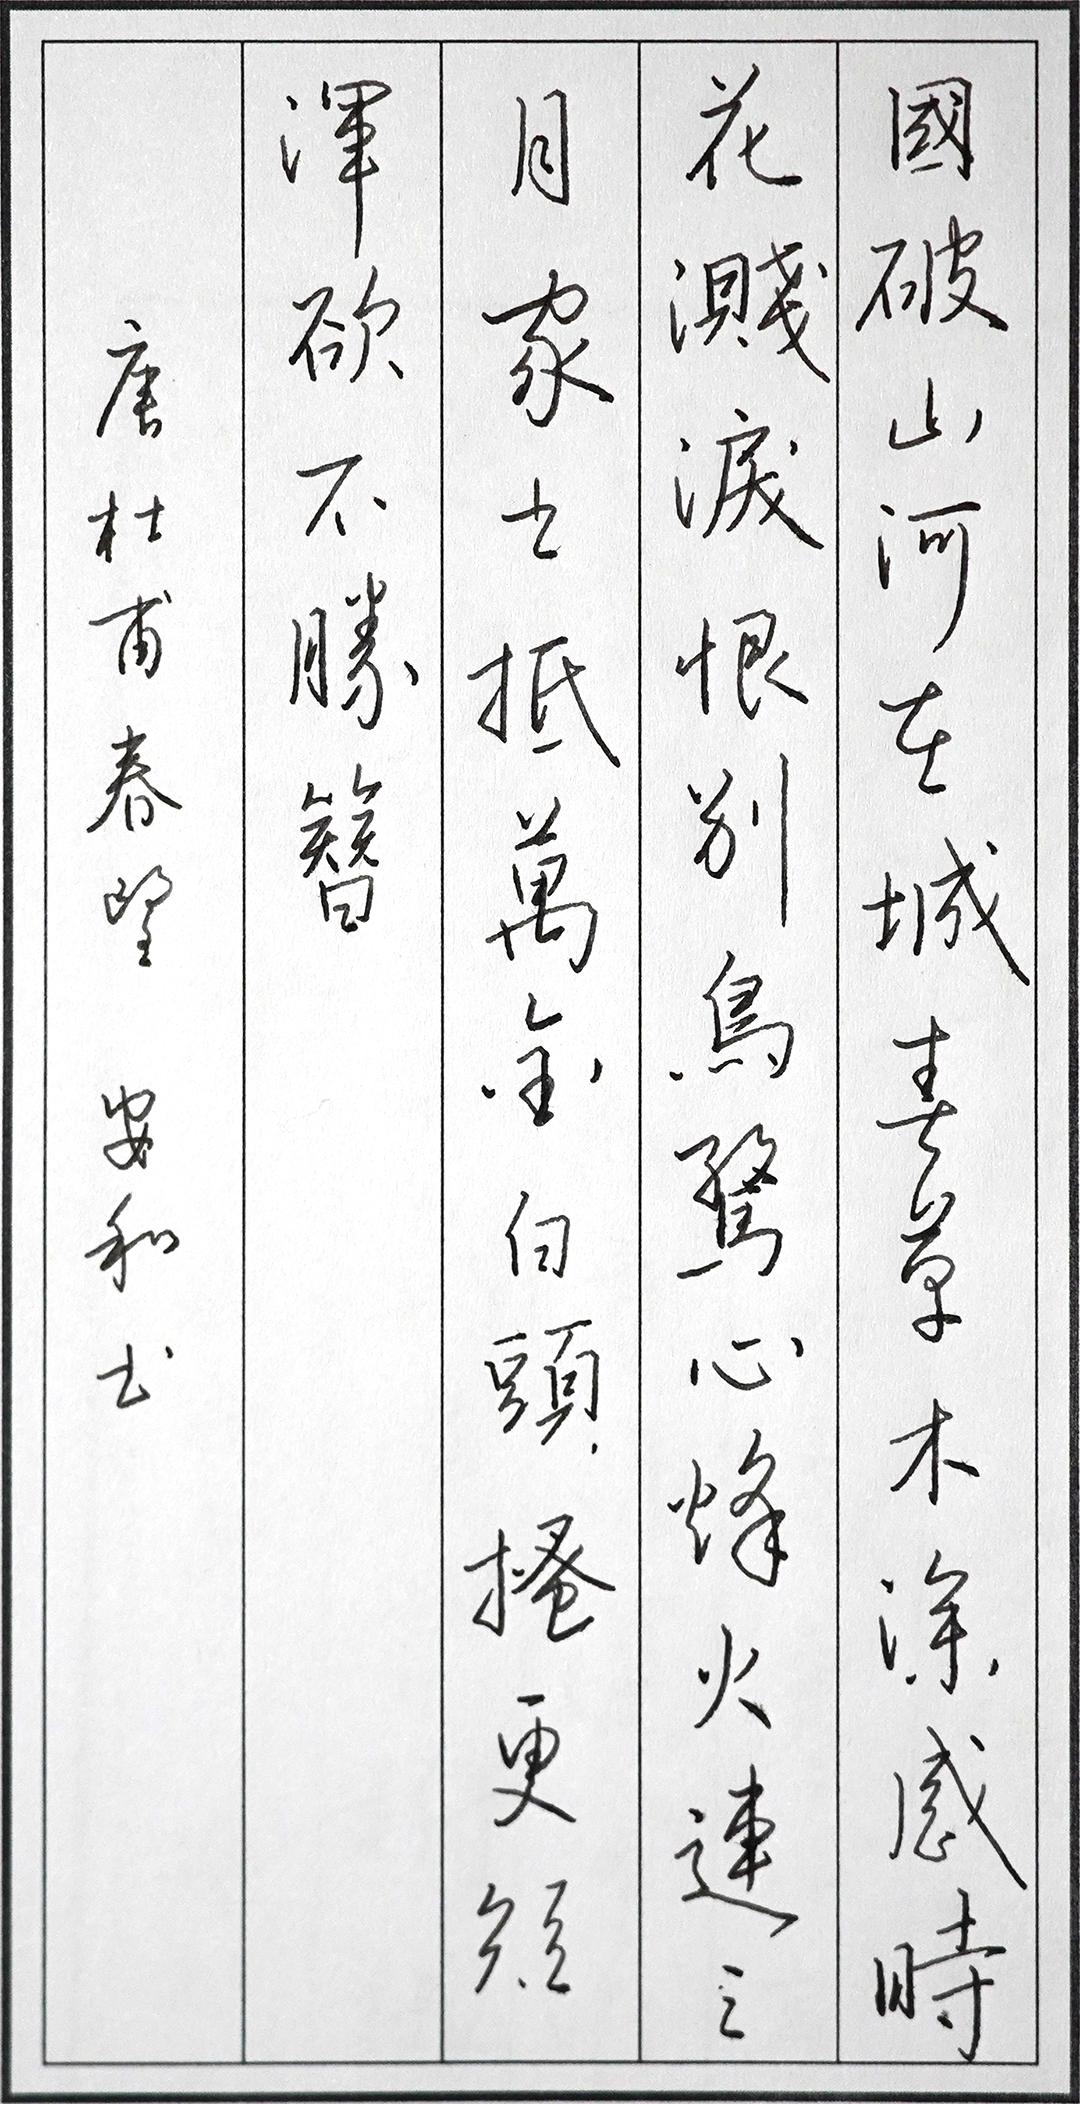 國破山河在城春草木深感時
花濺淚恨別鳥驚心烽火連三
月家書抵萬金白頭搔更短
渾欲不勝簪
唐杜甫春望 安和書